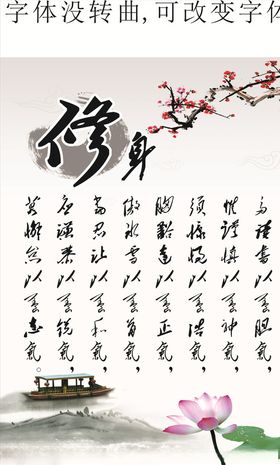 字体没转曲,可改变字体
修身
多读书以养胆气,
惟谨慎以养神气,
须慷慨以养浩气,
胸豁达以养正气,
傲冰雪以养骨气,
当忍让以养和气,
应谦恭以养锐气,
莫懈怠以养志气。